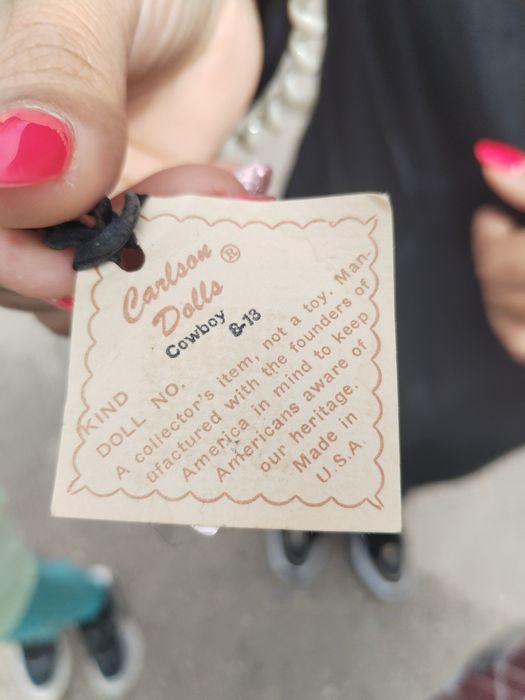 Carlson®
Dolls
KIND Cowboy
DOLL NO. 8-13
A collector's item, not a toy. Man-
ufactured with the founders of
America in mind to keep
Americans aware of
our heritage.
Made in
U.S.A.